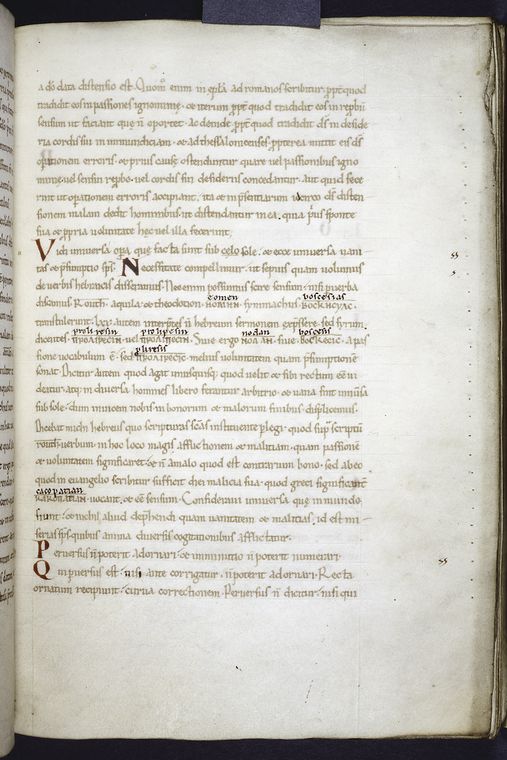 a dō data distensio est. Quom̄ enim in epl̄a ad romanos scribitur. ppt̄ quod
tradidit eos in passiones ignominię. et iterum ppt̄ quod tradidit eos in repbū
sensum ut faciant quę n̄ oportet. ac deinde ppt̄ quod tradidit d̄s in deside
ria cordis sui in inmundiciam. et ad thessalonicenses. ppterea mittit eis d̄s
opationem erroris. et prius causę ostenduntur quare vel passionibus igno
minię vel sensui repbo. vel cordis sui desideriis concedantur. aut quid fece
rint ut opationem erroris accipiant. ita et in psentiarum idcirco d̄s disten
sionem malam dedit hominibus ut distendantur in ea. quia prius sponte
sua et ppria voluntate hęc vel illa fecerint;
Vidi universa opa, quę facta sunt sub celo sole. et ecce universa vani
tas et psumptio sp̄s. Necessitate compellimur. ut sepius quam volumus
de verbis hebraicis disseramus. Nec enim possumus scire sensum. nisi p verba
discimus. Routh. aquila. et theodotion nomen
bosceseos
transtulerunt. lxx. autem interptes n̄ hebreum sermonem expssere. sed syrum.
proliresin prohpesin nodan boscesis
dicentes. vel Sive ergo sive a pas
sione vocabulum ē. sed melius voluntatem quam psumptionē
sonat. Dicitur autem quod agat unusquisq. quod velit. et sibi rectum eē vi
deatur. atq in diversa homines libero ferantur arbitrio. et vana sint universa
sub sole. dum invicem nobis in bonorum et malorum finibus displicemus.
Dicebat michi hebreus quo scripturas scās instituente plegi. quod sup scriptū
routh verbum in hoc loco magis afflictionem et malitiam. quam passionē
et voluntatem significaret. et n̄ a malo quod est contrarium bono. sed ab eo
quod in evangelio scribitur. sufficit diei malicia sua. quod greci significant
caco patian
vocant. et eē sensum. Consideravi universa quę in mundo
fiunt. et nichil aliud dephendi quam vanitatem et malitias. id est mi
serias sp̄s. quibus anima diversis cogitationibus afflictatur.
Perversus n̄ poterit adornari. et imminutio n̄ poterit numerari.
Qui pversus est. nisi ante corrigatur. n̄ poterit adornari. Recta
ornatum recipiunt. curva correctionem. Perversus n̄ dicitur. nisi qui